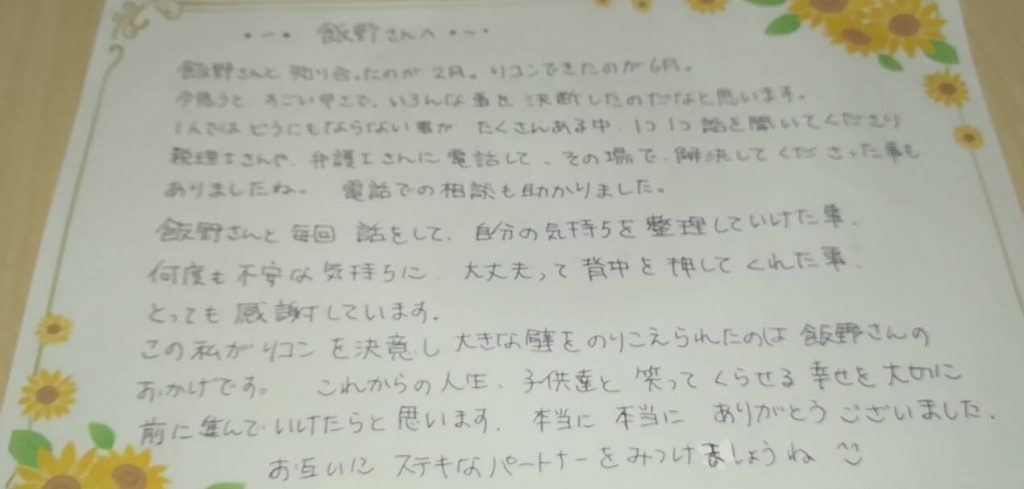 ・-・ 飯野さんへ ・-・
飯野さんと知り合ったのが2月。リコンできたのが6月。
今思うと、すごい早さで、いろんな事を決断したのだなと思います。
1人ではどうにもならない事がたくさんある中、1つ1つ話を聞いてくださり
税理士さんや、弁護士さんに電話して、その場で、解決してくださった事も
ありましたね。 電話での相談も助かりました。
飯野さんと毎回 話をして、自分の気持ちを整理していけた事、
何度も不安な気持ちに、大丈夫って背中を押してくれた事、
とっても感謝しています。
この私がリコンを決意し大きな壁をのりこえられたのは飯野さんの
おかげです。 これからの人生、子供達と笑ってくらせる幸せを大切に
前に進んでいけたらと思います。本当に本当にありがとうございました。
お互いにステキなパートナーをみつけましょうね ^^